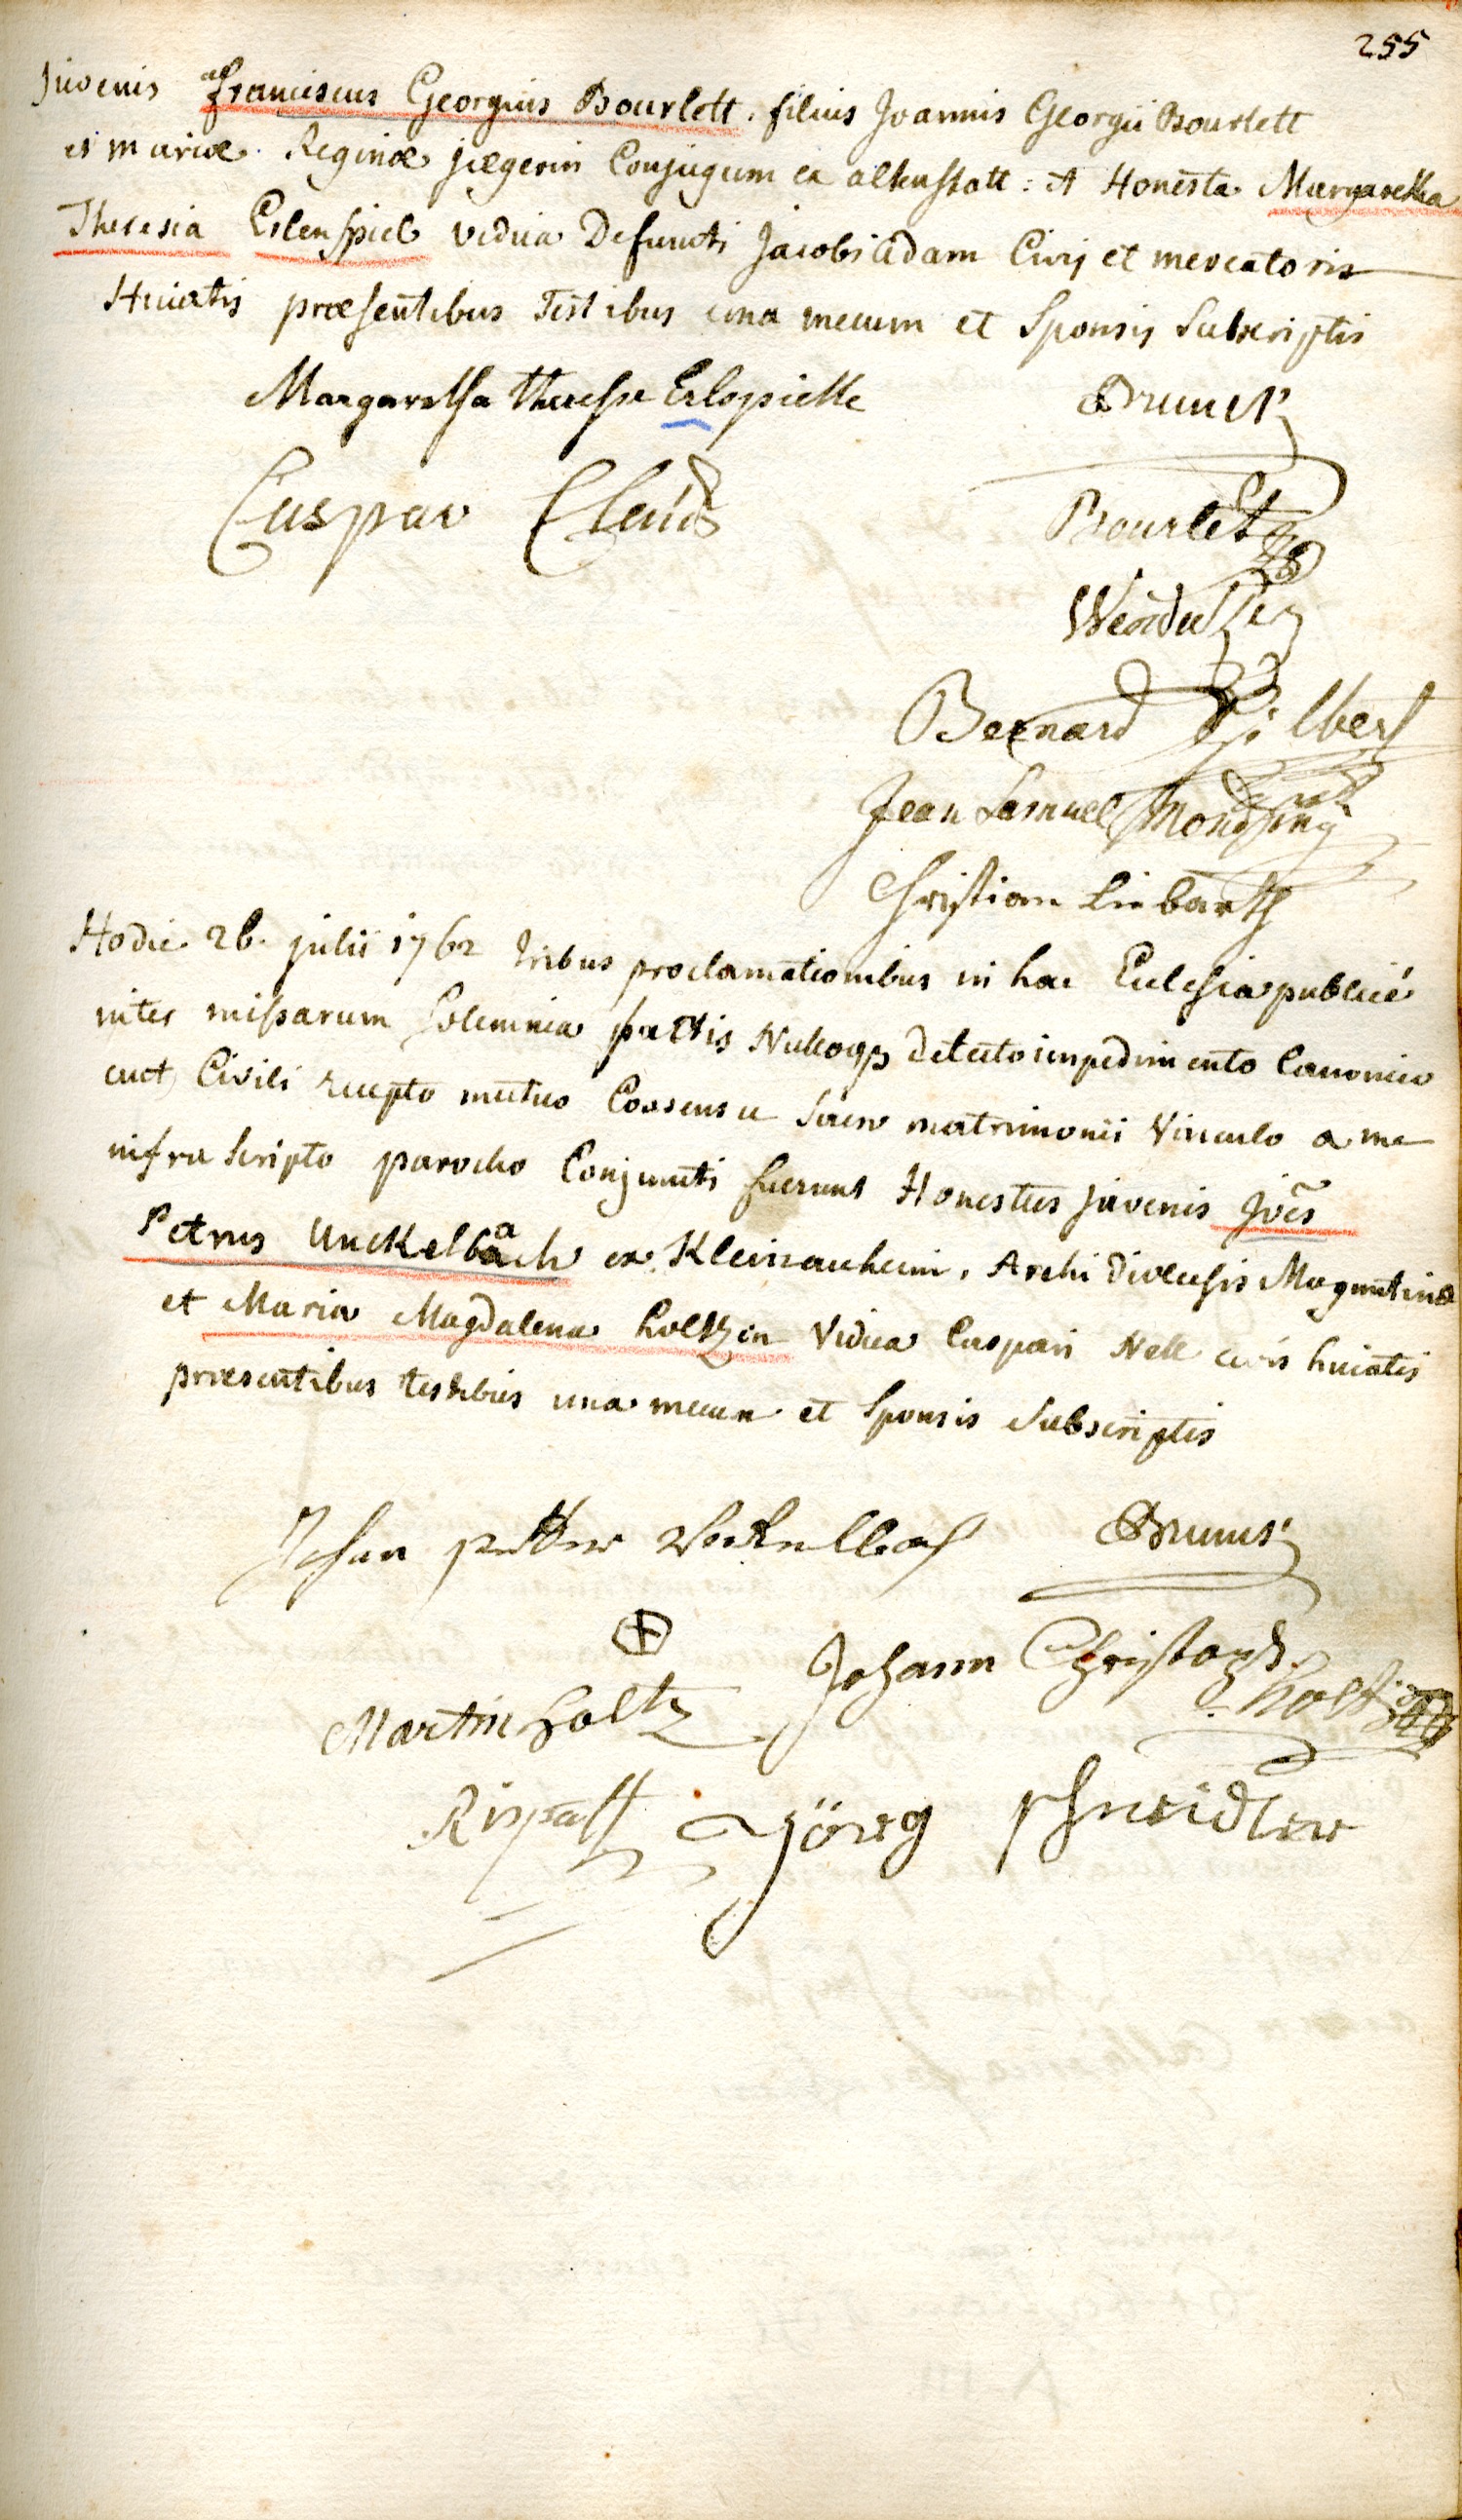 255
Juvenis Franciscus Georgius Bourlett, filius Joannis Georgii Bourlett
et mariæ Reginæ jægerin Conjugum ex altenstatt: et Honesta Margaretha
Theresia Eslenspiel vidua Defuncti Jacobi Adam Civis et mercatoris
Huiatis præsentibus Testibus una mecum et Sponsis Subscriptis
Margaretha Therese Erlspielle Brunck
Caspar Claús Bourlet
Bernard Gilbert
Jean Samuel Mondsiny
Christian Liebarth
Hodie 26. julii 1762 tribus proclamationibus in hac Ecclesia publicé
inter missarum Solemnia factis Nulloq detecto impedimento Canonico
aut Civili recepto mutuo Consensu Sacro matrimonii Vinculo a me
infra Scripto parocho Conjuncti fuerunt Honestus juvenis Joēs
Petrus Unckelbach ex Kleinauheim, Archi Diœcesis Moguntinæ
et Maria Magdalena holtzin Vidua Caspari Nell civis huiatis
præsentibus testibus una mecum et Sponsis Subscriptis
Johan petter Brunck
Johann Christoph holtz
Martin holtz
jörg schneidler